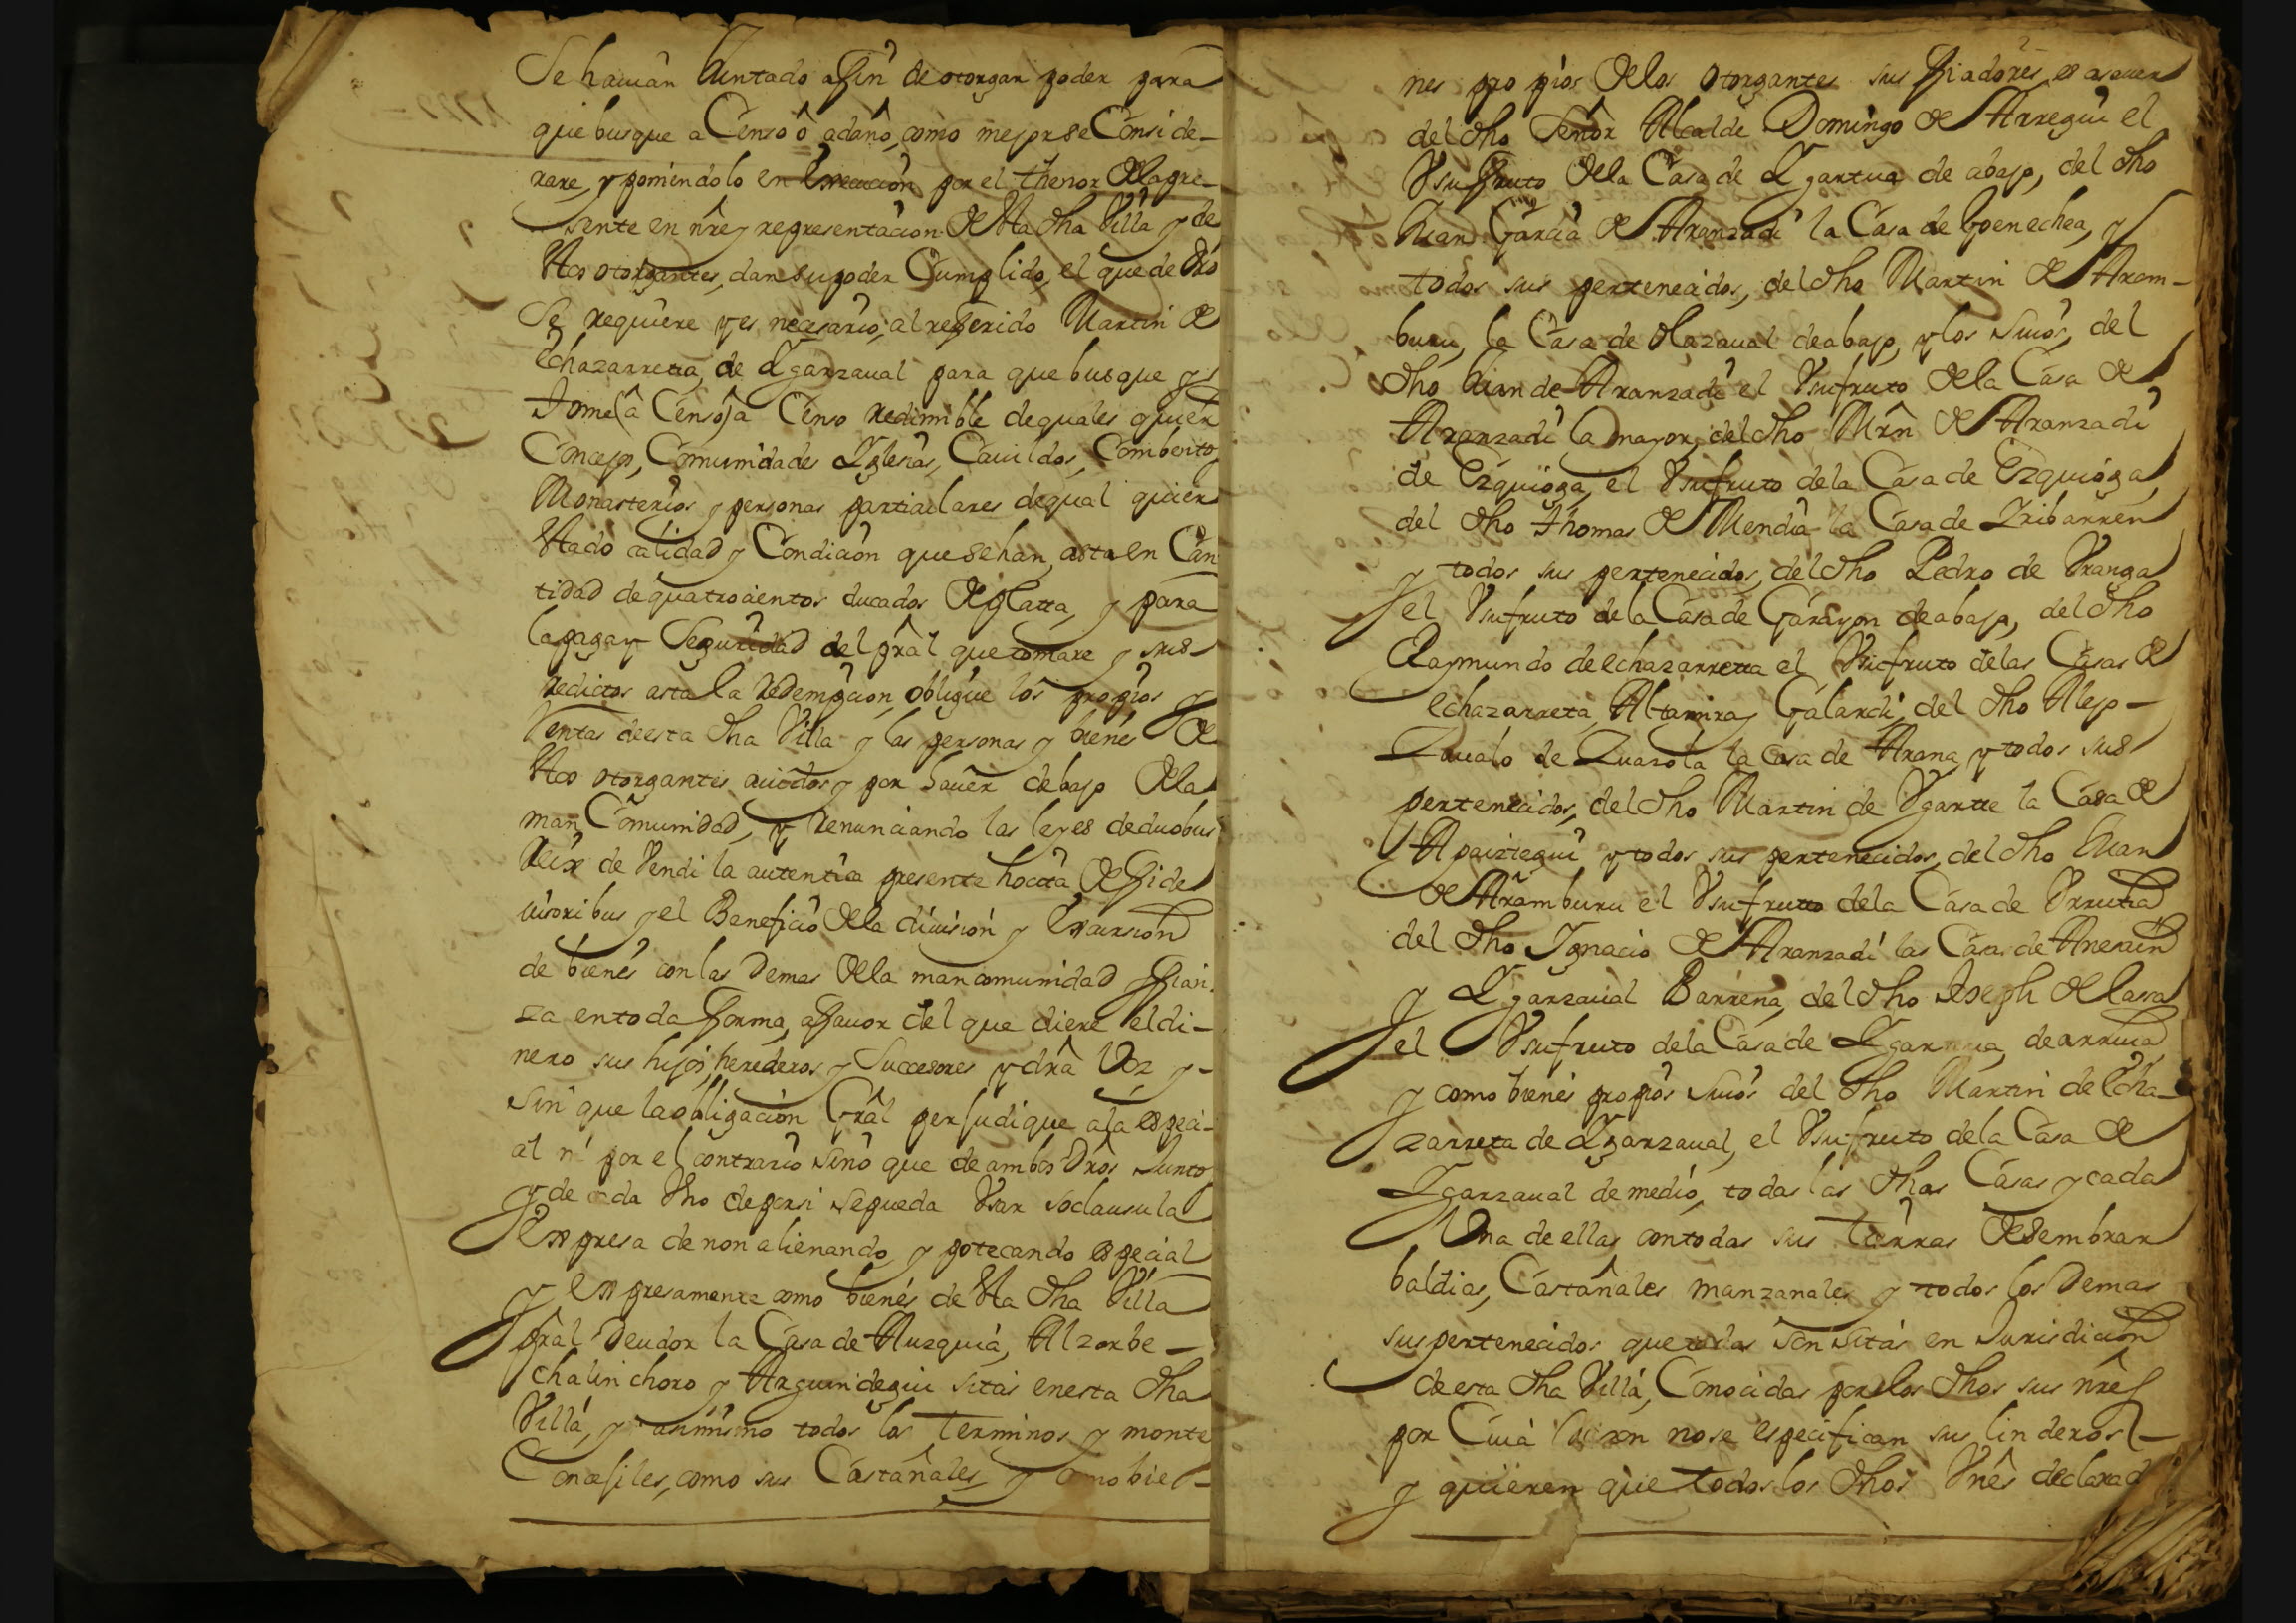 Se hauian Juntado afin de otorgar poder para
que busque a Censo ô adaño, como mejor se Conside-
rare, y poniendolo en Execucion por el thenor de la pre-
sente en nr̃e y representacion de sta dha Villa y de
stos otorgantes, dan su poder Cumplido, el que de dr̃o
Se requiere y es necesario, al referido Martin de
Echazarreta, de Ygarzaual para que busque y
tome (â Censo) a Censo redimible de quales quier
Concejo, Comunidades Yglesias, Cauildos, Combentos
Monasterios y personas particulares de qual quier
stado calidad y Condicion que se han, asta en Can
tidad de quatrocientos ducados de platta, y para
la paga y Seguridad del pr̃al que tomare y sus
redictos asta la redempcion, obligue los propios y
Rentas de esta dha Villa y las personas y bienes de
stos otorgantes auidos y por hauer debajo de la
man Comunidad, y renunciando las leyes de duobus
Reix de vendi la autentica presente hocita de fide
iusoribus y el Beneficio de la diuision y Excursion
de bienes con las demas de la mancomunidad y fian
za en toda forma, a fauor del que diere el di-
nero sus hijos, herederos y Succesores y dr̃a Voz y-
sin que la obligacion Gr̃al perjudique a la especi-
al ni por el contrario sino que de ambos dr̃os Junto
y de cada Vno de por si se pueda Vsar so clausula
Expresa de non alienando, y potecando especial
y Expresamente como bienes de sta dha Villa
pr̃al deudor la Casa de Auzquia, Alzorbe-
chalinchoro y Arguindegui sitas en esta dha
Villa, y asimismo todos los terminos y monte
Concejiles, como sus Castañales, y como bie-
nes propios de los otorgantes sus fiadores, es asauer
del dho Señor Alcalde Domingo de Arregui el
Vsufruto de la Casa de Ygartua de abajo, del dho
Juan Garcia de Aranzadi la Casa de Goenechea, y
todos sus pertenecidos, del dho Martin de Aram-
buru, la Casa de Olazaual de abajo, y los suios, del
dho Juan de Aranzadi el Vsufruto de la Casa de
Aranzadi la mayor, del dho Mr̃n de Aranzadi
de Ezquioga, el Vsufruto de la Casa de Ezquioga,
del dho Thomas de Mendia la Casa de Yribarren
y todos sus pertenecidos, del dho Pedro de Vranga
el Vsufruto de la Casa de Garayon de abajo, del dho
Raymundo de Echazarreta el Vsufruto de las Casas de
Echazarreta, Altamira y Galardi, del dho Alejo-
de Zuazola la Casa de Arana, y todos sus
pertenecidos, del dho Martin de Vgartte la Casa de
Apaiztegui y todos sus pertenecidos, del dho Juan
de Aramburu el Vsufrutto de la Casa de Vrrutia
del dho Ygnacio de Aranzadi las Casas de Anesain
y Ygarzaual Barrena, del dho Joseph de Lasa
el Vsufruto de la Casa de Ygartua, de arriua
y como bienes propios suios del dho Martin de Echa-
zarreta de Ygarzaual, el Vsufruto de la Casa de
Ygarzaual de medio, todas las dhas Casas y cada
Vna de ellas con todas sus tierras de sembrar
baldias, Castañales manzanales y todos los demas
sus pertenecidos que todas son sitas en Jurisdicion
de esta dha Villa, Conocidas por los dhos sus nr̃es
por Cuia razon no se especifican sus linderos-
y quieren que todos los dhos Vnēs declarad